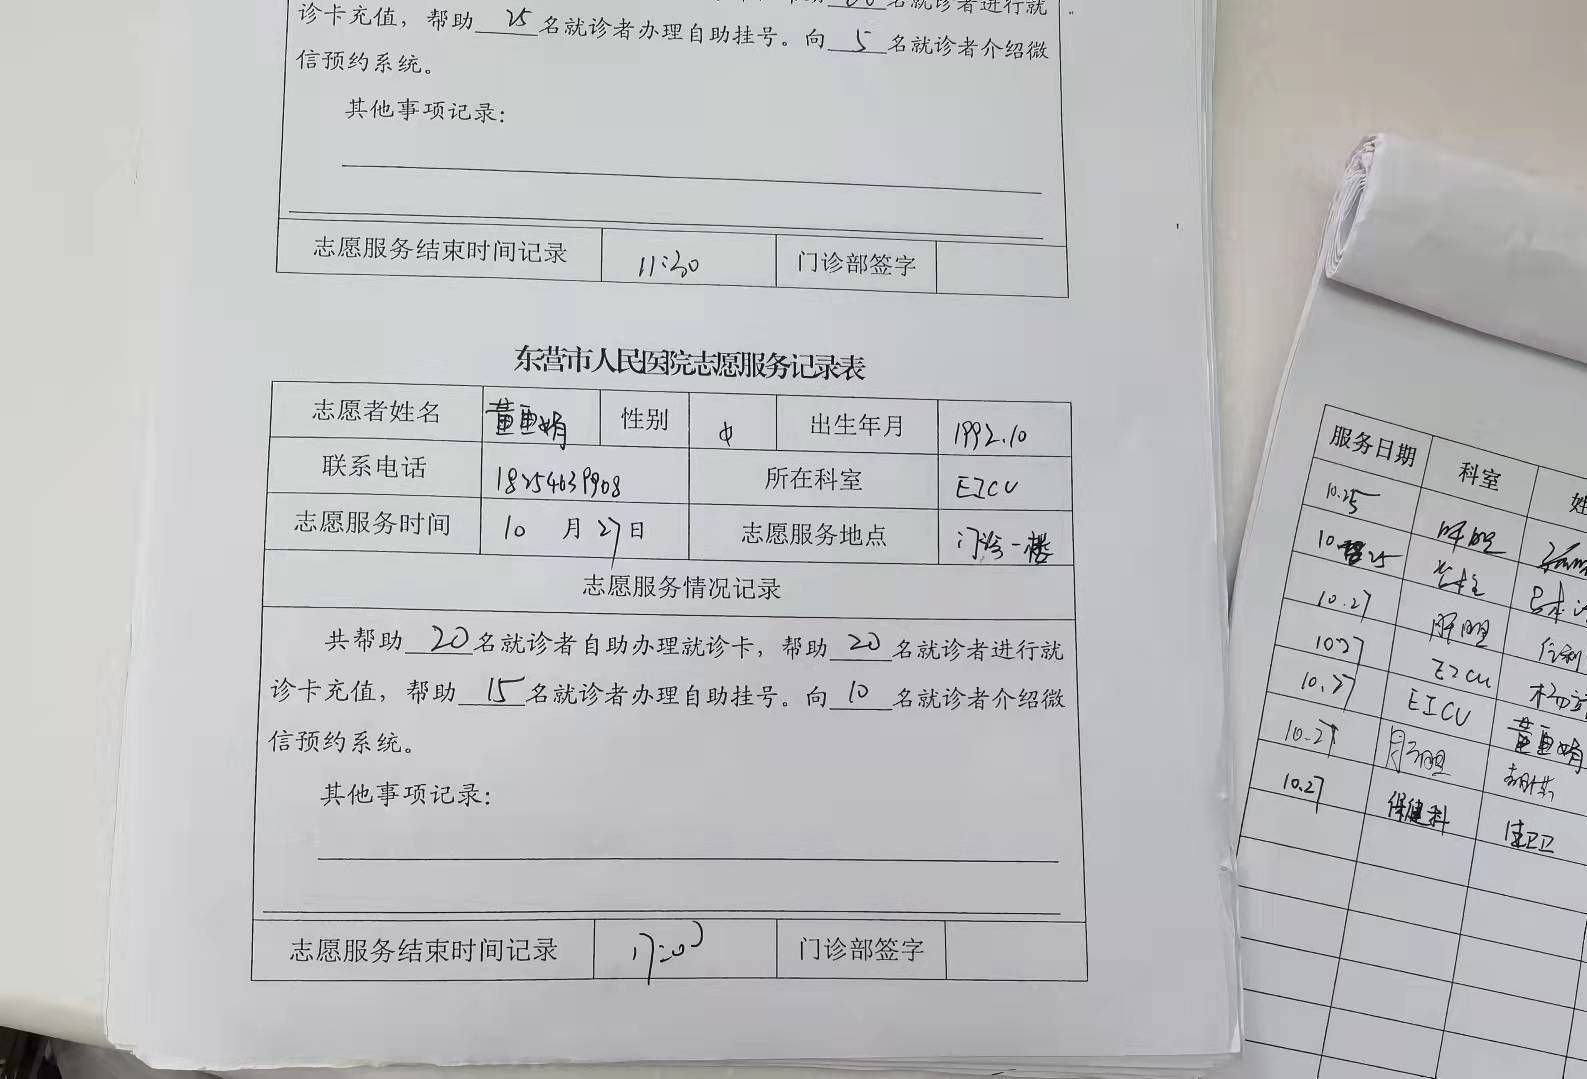 诊卡充值，帮助 25 名就诊者办理自助挂号。向 5 名就诊者介绍微
信预约系统。
其他事项记录：
志愿服务结束时间记录 11:30 门诊部签字
东营市人民医院志愿服务记录表
志愿者姓名 董亚娟 性别 女 出生年月 1992.10
联系电话 18254639908 所在科室 EICU
志愿服务时间 10 月 27 日 志愿服务地点 门诊一楼
志愿服务情况记录
共帮助 20 名就诊者自助办理就诊卡，帮助 20 名就诊者进行就
诊卡充值，帮助 15 名就诊者办理自助挂号。向 10 名就诊者介绍微
信预约系统。
其他事项记录：
志愿服务结束时间记录 17:00 门诊部签字
服务日期 科室 姓
10.25 肝胆
10 25
10.27 肝胆
10.27 EICU
10.27 EICU 董亚娟
10.27 肝胆
10.27 保健科